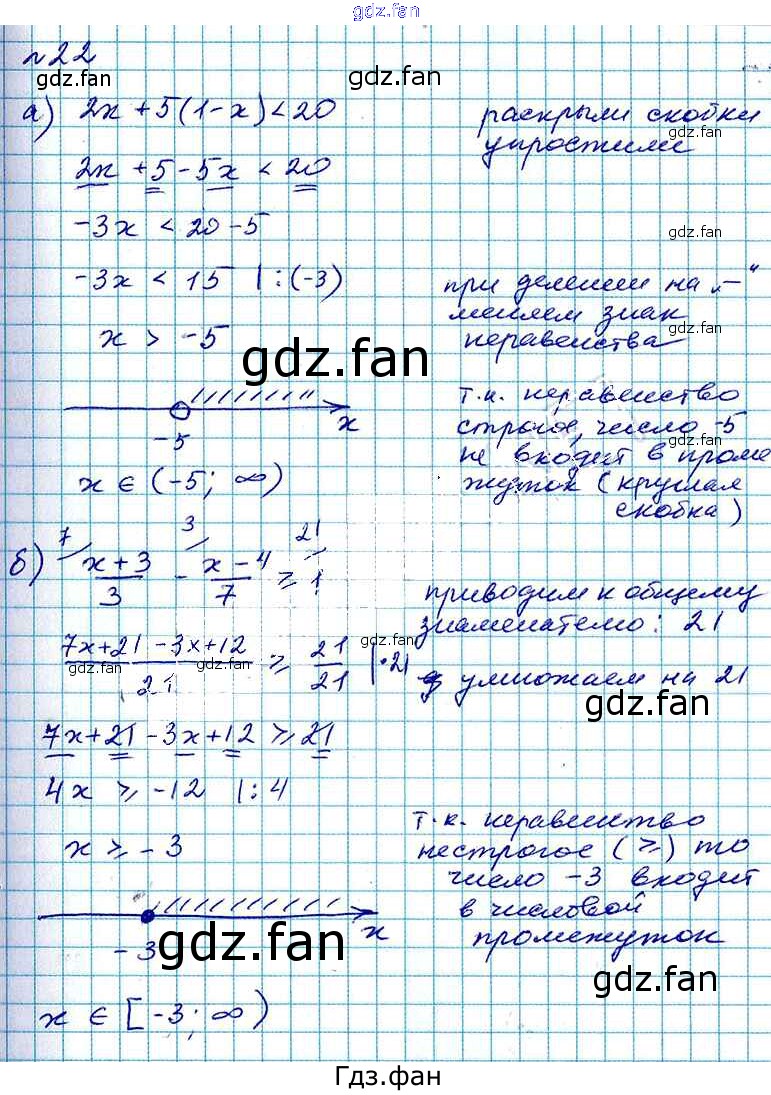 gdz.fan
№22
gdz.fan
gdz.fan
а) 2x + 5(1 - x) < 20
раскрыли скобки
gdz.fan
упростили
2x + 5 - 5x < 20
gdz.fan
-3x < 20 - 5
gdz.fan
gdz.fan
-3x < 15 | : (-3)
при делении на „—“
меняем знак
gdz.fan
неравенства
x > -5
gdz.fan
-5
x
т.к. неравенство
строгое, число -5
не входит в проме
жуток (круглая
скобка)
x ∈ (-5; ∞)
gdz.fan
б) 7 3 21
(x + 3)/3 - (x - 4)/7 ≥ 1
приводим к общему
знаменателю: 21
(7x + 21 - 3x + 12)/21 ≥ 21/21 | · 21
gdz.fan
gdz.fan
gdz.fan
умножаем на 21
gdz.fan
7x + 21 - 3x + 12 ≥ 21
4x ≥ -12 | : 4
x ≥ -3
т.к. неравенство
нестрогое (≥) то
число -3 входит
в числовой
промежуток
-3
x
gdz.fan
gdz.fan
x ∈ [-3; ∞)
Гдз.фан